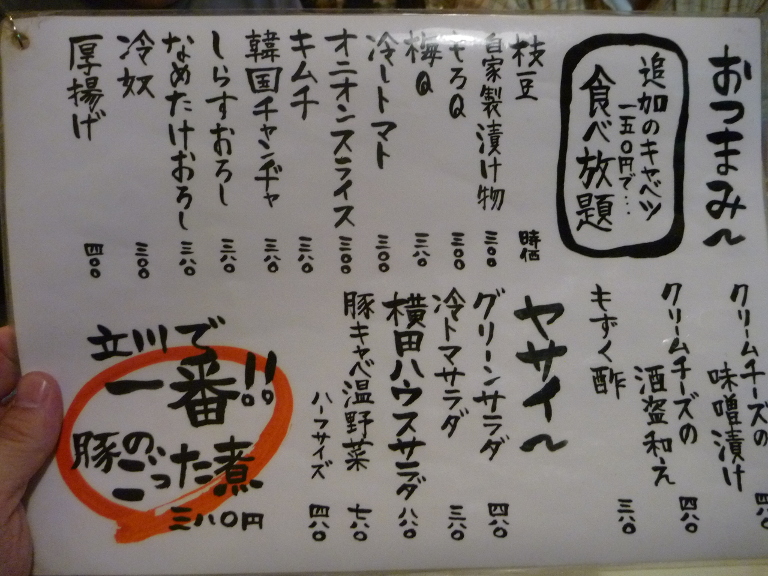 おつまみ〜
追加のキャベツ
一五〇円で…
食べ放題
枝豆 時価
自家製漬け物 三〇〇
もろQ 三〇〇
梅Q 三八〇
冷トマト 三〇〇
オニオンスライス 三〇〇
キムチ 三八〇
韓国チャンヂャ 三八〇
しらすおろし 三八〇
なめたけおろし 三八〇
冷奴 三〇〇
厚揚げ 四〇〇
クリームチーズの
味噌漬け 四八〇
クリームチーズの
酒盗和え 四八〇
もずく酢 三八〇
ヤサイ〜
グリーンサラダ 四八〇
冷トマサラダ 三八〇
横田ハウスサラダ 八八〇
豚キャベ温野菜 七八〇
ハーフサイズ 四八〇
立川で
一番!!
豚のごった煮
三八〇円